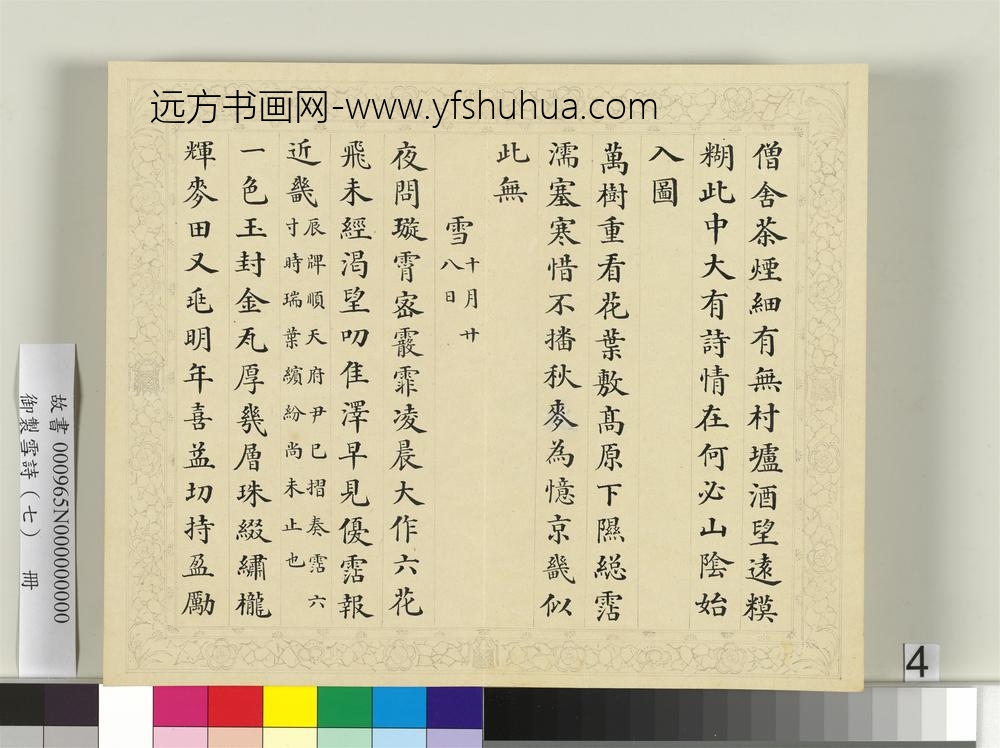 远方书画网-www.yfshuhua.com
僧舍茶煙細有無村壚酒望遠糢
糊此中大有詩情在何必山陰始
入圖
萬樹重看花葉敷髙原下隰総霑
濡塞寒惜不播秋麥為憶京畿似
此無
雪十月廿
八日
夜問璇霄宻霰霏凌晨大作六花
飛未經渇望叨隹澤早見優霑報
近畿辰牌順天府尹已摺奏霑六
寸時瑞葉繽紛尚未止也
一色玉封金瓦厚幾層珠綴繡櫳
輝麥田又兆明年喜益切持盈勵
故書 000965N000000000
御製雪詩（七） 冊
4